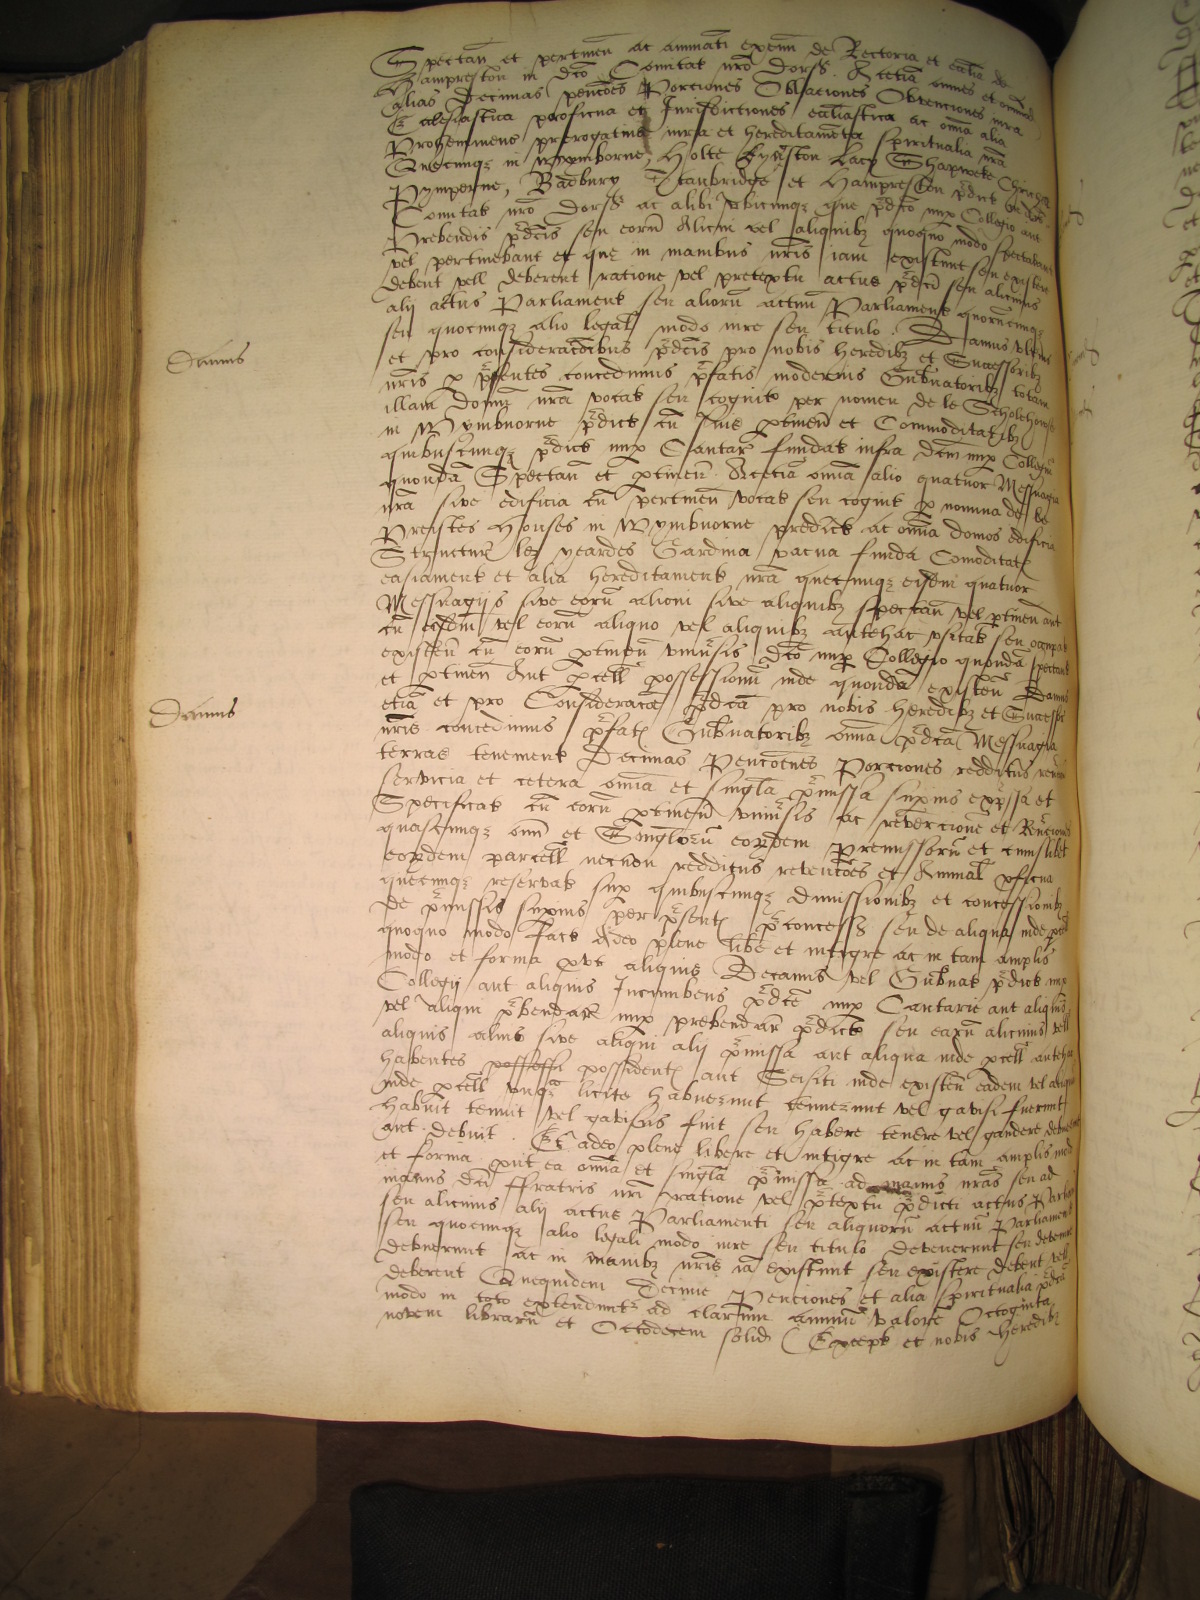 Spectan et pertinen ac annuati exeun de Rectoria et ecclia de
Hampreston in dco Comitat nro Dors. Acetia omnes et omnimod
alias Decimas penciões Porciones Oblaciones Obvenciones nra
Ecclesiastica proficua et Jurisdictiones eccliastica ac omia alia
Preheminens prerogativas iura et hereditamenta spiritualia nra
Quecunqz in Wymborne, Holte, Kyngston Lacy Shapweke
Pymperne, Badbury Stanbridge et Hampreston pdict in dco
Comitat nro Dors ac alibi vbicunqz que pdco nup Collegio aut
Prebendis pdcis seu eorū Alicui vel aliquibz quoquo modo spectabant
vel pertinebant et que in manibus nris iam existunt seu existere
debent vell deberent ratione vel pretextu actus pdci seu alicuius
alij actus Parliament seu aliorū actuū Parliament quorūcunqz
seu quocunqz alio legali modo iure seu titulo. Damus vlterius
et pro consideracõibus pdcis pro nobis heredibz et Successoribz
nris p psentes concedimus pfatis modernis Gubnatoribz totam
illam domū nrā vocat seu cognit per nomen de le Scholehowse
in Wymborne pdict cū suis ptinen et Commoditatibz
quibuscunqz pdict nup Cantar fundat infra dcm nup Collegiū
quondā Spectan et ptinen. Acetiā omia alio quatuor Messuagia
nra sive edificia cū pertinen vocat seu cognit p nomina de le
Preistes Houses in Wymborne predict ac omia domos edificia
Structur lez yeardes Gardina vacua funda Comoditat
easiament et alia hereditament nrā quecunqz eisdem quatuor
Messuagijs sive eorū alicui sive aliquibz spectan vel ptinen aut
cū eisdem vel eorū aliquo vel aliquibz antehac vsitat seu occupat
existen cū eorū ptinen vniūsis dco nup Collegio quondā spectant
et ptinen Aut pcell possessionū inde quondā existen Damus
Damus
etiā et pro Consideracõe pdcā pro nobis heredibz et Successor
Damus
nris concedimus pfat Gubnatoribz omia pdcā Messuagia
terras tenement Decimas Penciões Porciones redditus
servicia et cetera omia et singla pmissa supius expssa et
Specificat cū eorū ptinen vniūsis ac revercione et Revciones
quascunqz om et Singlorū eorundem premissorū et cuiuslibet
eorundem parcell necnon redditus retenciões et Annual pficua
quecunqz reservat sup quibuscunqz dimissionibz et concessionibz
de pmissis supius per psent pconcess seu de aliqua inde pcell
quoquo modo fact Adeo plene libe et integre ac in tam amplis
modo et forma put aliquis Decanus vel Gubnat pdict nup
Collegij aut aliquis Incumbens pdcē nup Cantarie aut aliquis
vel aliqui pbendar nup prebendar pdict seu earū alicuius vell
aliquis alius sive aliqui alij pmissa aut aliqua inde pcell antehac
habentes possessi possident aut Seisiti inde existen eadem vel aliqua
inde pcell vnqz licite habuerunt tenuerunt vel gavisi fuerunt
habuit tenuit vel gavisus fuit seu habere tenere vel gaudere debuerunt
aut debuit. Et adeo plene libere et integre ac in tam amplis modo
et forma put ea omia et singla pmissa ad manus nras seu ad
manus dci ffratris nri ratione vel ptextu pdicti actus Parliam
seu alicuius alij actus Parliamenti seu aliquorū actuū Parliament
seu quocunqz alio legali modo iure seu titulo devenerunt seu devenire
debuerunt ac in manibz nris iā existunt seu existere debent vell
deberent Quequidem Decime Penciones et alia spiritualia pdcā
modo in toto extendunt ad clarum annuū valorē Octoginta
novem librarū et Octodecem solid Except et nobis heredibz